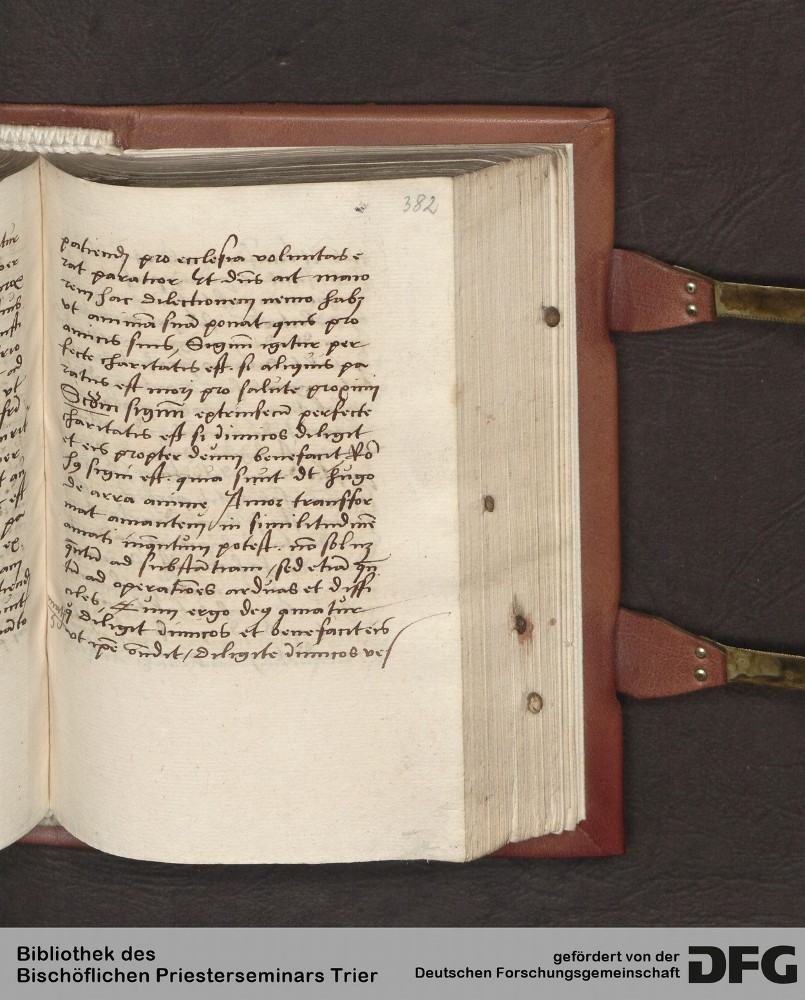 382
patiendj pro ecclesia voluntas e
rat paratior Et dns̄ ait maio
rem hac dilectionem nemo habꝫ
vt animā suā ponat quis pro
amicis suis, Signū igitur per
fecte charitatis est. si aliquis pa
ratus est morj pro salute proximj
Scdm̄ signū extrinsecū perfecte
charitatis est si inimicos diligit
et eis propter deum benefacit Rō
signi est. quia sicut dt hugo
de arra anime / Amor transfor
mat amantem in similitudinē
amati inqn̄tum potest. nō solum
qn̄tū ad substātiam / sed etiā qn̄
tū ad operatiōes arduas et diffi
ciles, Cum ergo deꝯ amatur
diligit inimicos et benefaciteis
vt ipe ōndit / diligite inimicos ves
Bibliothek des
Bischöflichen Priesterseminars Trier
gefördert von der
Deutschen Forschungsgemeinschaft
DFG